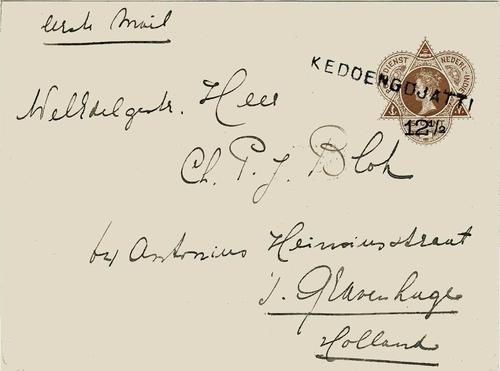 eerste Mail
KEDOENGDJATTI
DIENST NEDERL-INDIE
12½
WelEdelgestr. Heer
Ch. P. J. Blok
Antonius Heinsiusstraat
's Gravenhage
Holland